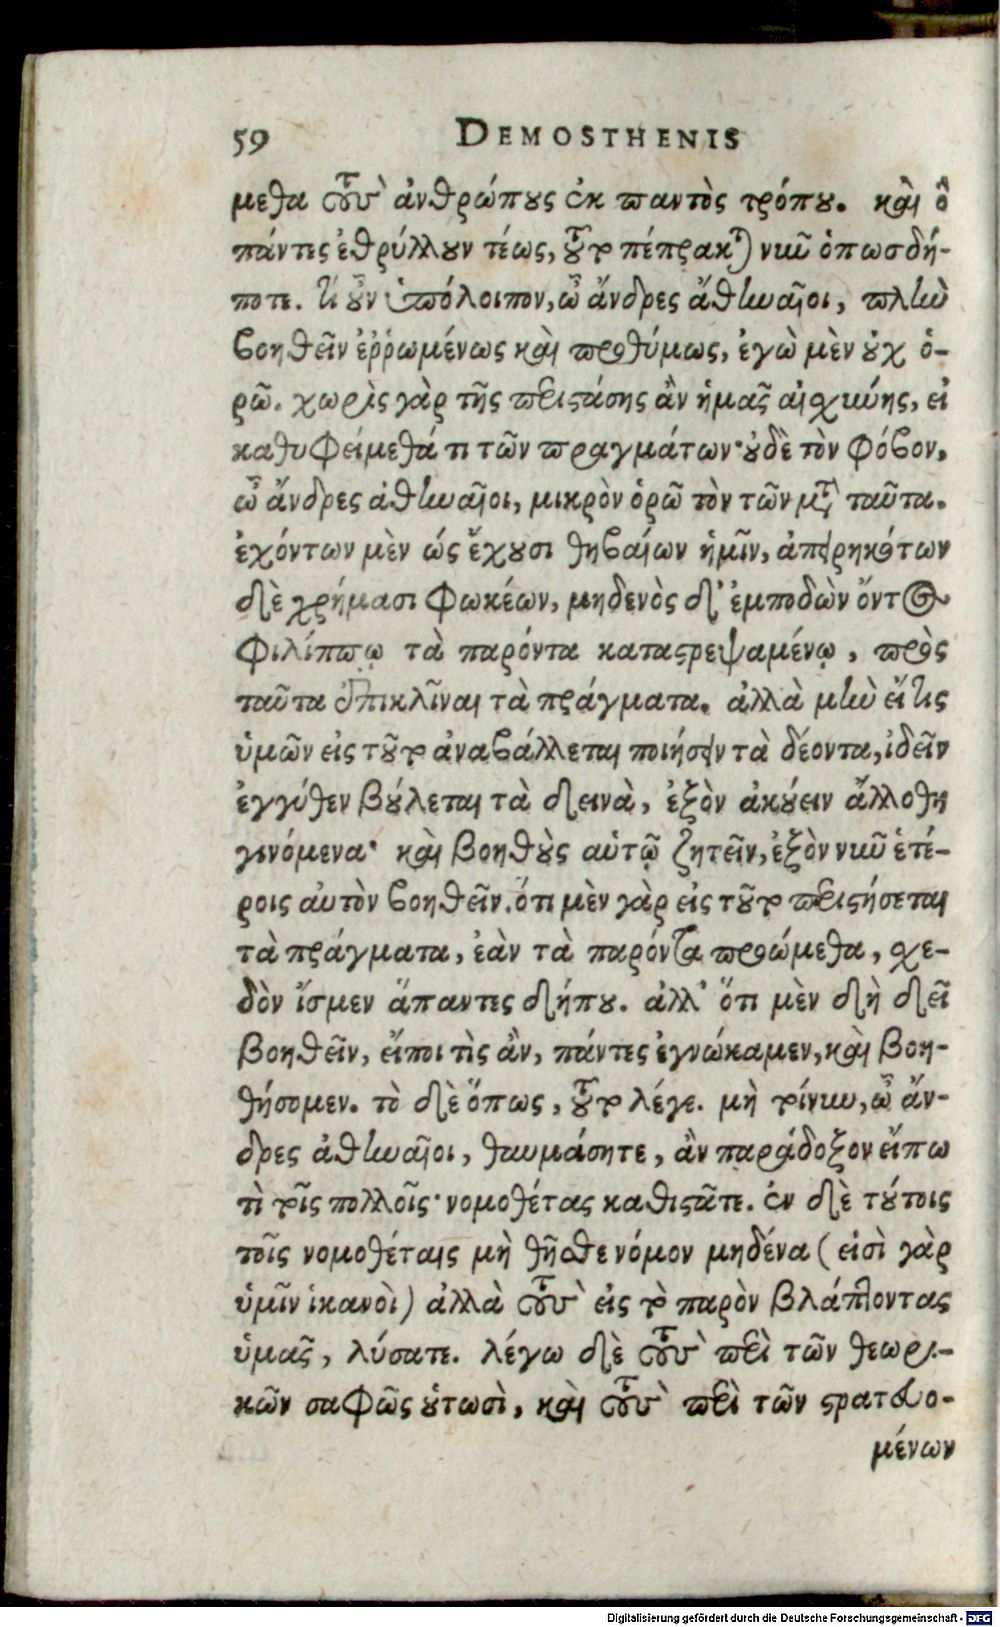 59 DEMOSTHENIS
μεθα τοὺς ἀνθρώπους ἐκ παντὸς τρόπου. καὶ ὃ
πάντες ἐθρύλλουν τέως, τοῦτο πέπρακται νυνὶ ὁπωσδή-
ποτε. τί οὖν ὑπόλοιπον, ὦ ἄνδρες ἀθηναῖοι, πλὴν
βοηθεῖν ἐῤῥωμένως καὶ προθύμως, ἐγὼ μὲν οὐχ ὁ-
ρῶ. χωρὶς γὰρ τῆς περιστάσης ἂν ἡμᾶς αἰσχύνης, εἰ
καθυφείμεθά τι τῶν πραγμάτων· οὐδὲ τὸν φόβον,
ὦ ἄνδρες ἀθηναῖοι, μικρὸν ὁρῶ τὸν τῶν μετὰ ταῦτα.
ἐχόντων μὲν ὡς ἔχουσι θηβαίων ἡμῖν, ἀπειρηκότων
δὲ χρήμασι φωκέων, μηδενὸς δ' ἐμποδὼν ὄντος
Φιλίππῳ τὰ παρόντα καταστρεψαμένῳ, πρὸς
ταῦτα ἐπικλῖναι τὰ πράγματα. ἀλλὰ μὴν εἴ τις
ὑμῶν εἰς τοῦτο ἀναβάλλεται ποιήσειν τὰ δέοντα, ἰδεῖν
ἐγγύθεν βούλεται τὰ δεινὰ, ἐξὸν ἀκούειν ἄλλοθι
γινόμενα· καὶ βοηθοὺς αὑτῷ ζητεῖν, ἐξὸν νῦν ἑτέ-
ροις αὐτὸν βοηθεῖν. ὅτι μὲν γὰρ εἰς τοῦτο περιστήσεται
τὰ πράγματα, ἐὰν τὰ παρόντα προώμεθα, σχε-
δὸν ἴσμεν ἅπαντες δήπου. ἀλλ' ὅτι μὲν δὴ δεῖ
βοηθεῖν, εἴποι τὶς ἂν, πάντες ἐγνώκαμεν, καὶ βοη-
θήσομεν. τὸ δὲ ὅπως, τοῦτο λέγε. μὴ τοίνυν, ὦ ἄν-
δρες ἀθηναῖοι, θαυμάσητε, ἂν παράδοξον εἴπω
τὶ τοῖς πολλοῖς· νομοθέτας καθιστᾶτε. ἐν δὲ τούτοις
τοῖς νομοθέταις μὴ θῆσθε νόμον μηδένα (εἰσὶ γὰρ
ὑμῖν ἱκανοὶ) ἀλλὰ τοὺς εἰς τὸ παρὸν βλάπτοντας
ὑμᾶς, λύσατε. λέγω δὲ τοὺς περὶ τῶν θεωρι-
κῶν σαφῶς οὑτωσὶ, καὶ τοὺς περὶ τῶν στρατευο-
μένων
Digitalisierung gefördert durch die Deutsche Forschungsgemeinschaft - DFG